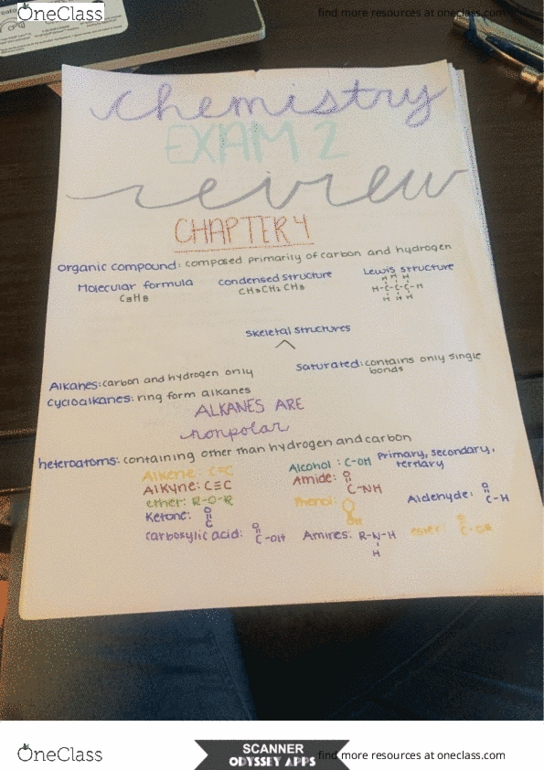 OneClass
find more resources at oneclass.com
chemistry
EXAM 2
review
CHAPTER 4
organic compound: composed primarily of carbon and hydrogen
Molecular formula
C3H8
condensed structure
CH3CH2CH3
Lewis structure
H H H
H-C-C-C-H
H H H
skeletal structures
Alkanes: carbon and hydrogen only
saturated: contains only single
bonds
cycloalkanes: ring form alkanes
ALKANES ARE
nonpolar
heteroatoms: containing other than hydrogen and carbon
Alkene: C=C
Alcohol: C-OH Primary, secondary,
tertiary
Alkyne: C≡C
Amide: O
C-NH
ether: R-O-R
Phenol:
OH
Aldehyde: O
C-H
Ketone: O
C
carboxylic acid: O
C-OH
Amires: R-N-H
H
ester: O
C-OR
OneClass
SCANNER
ODYSSEY APPS
find more resources at oneclass.com